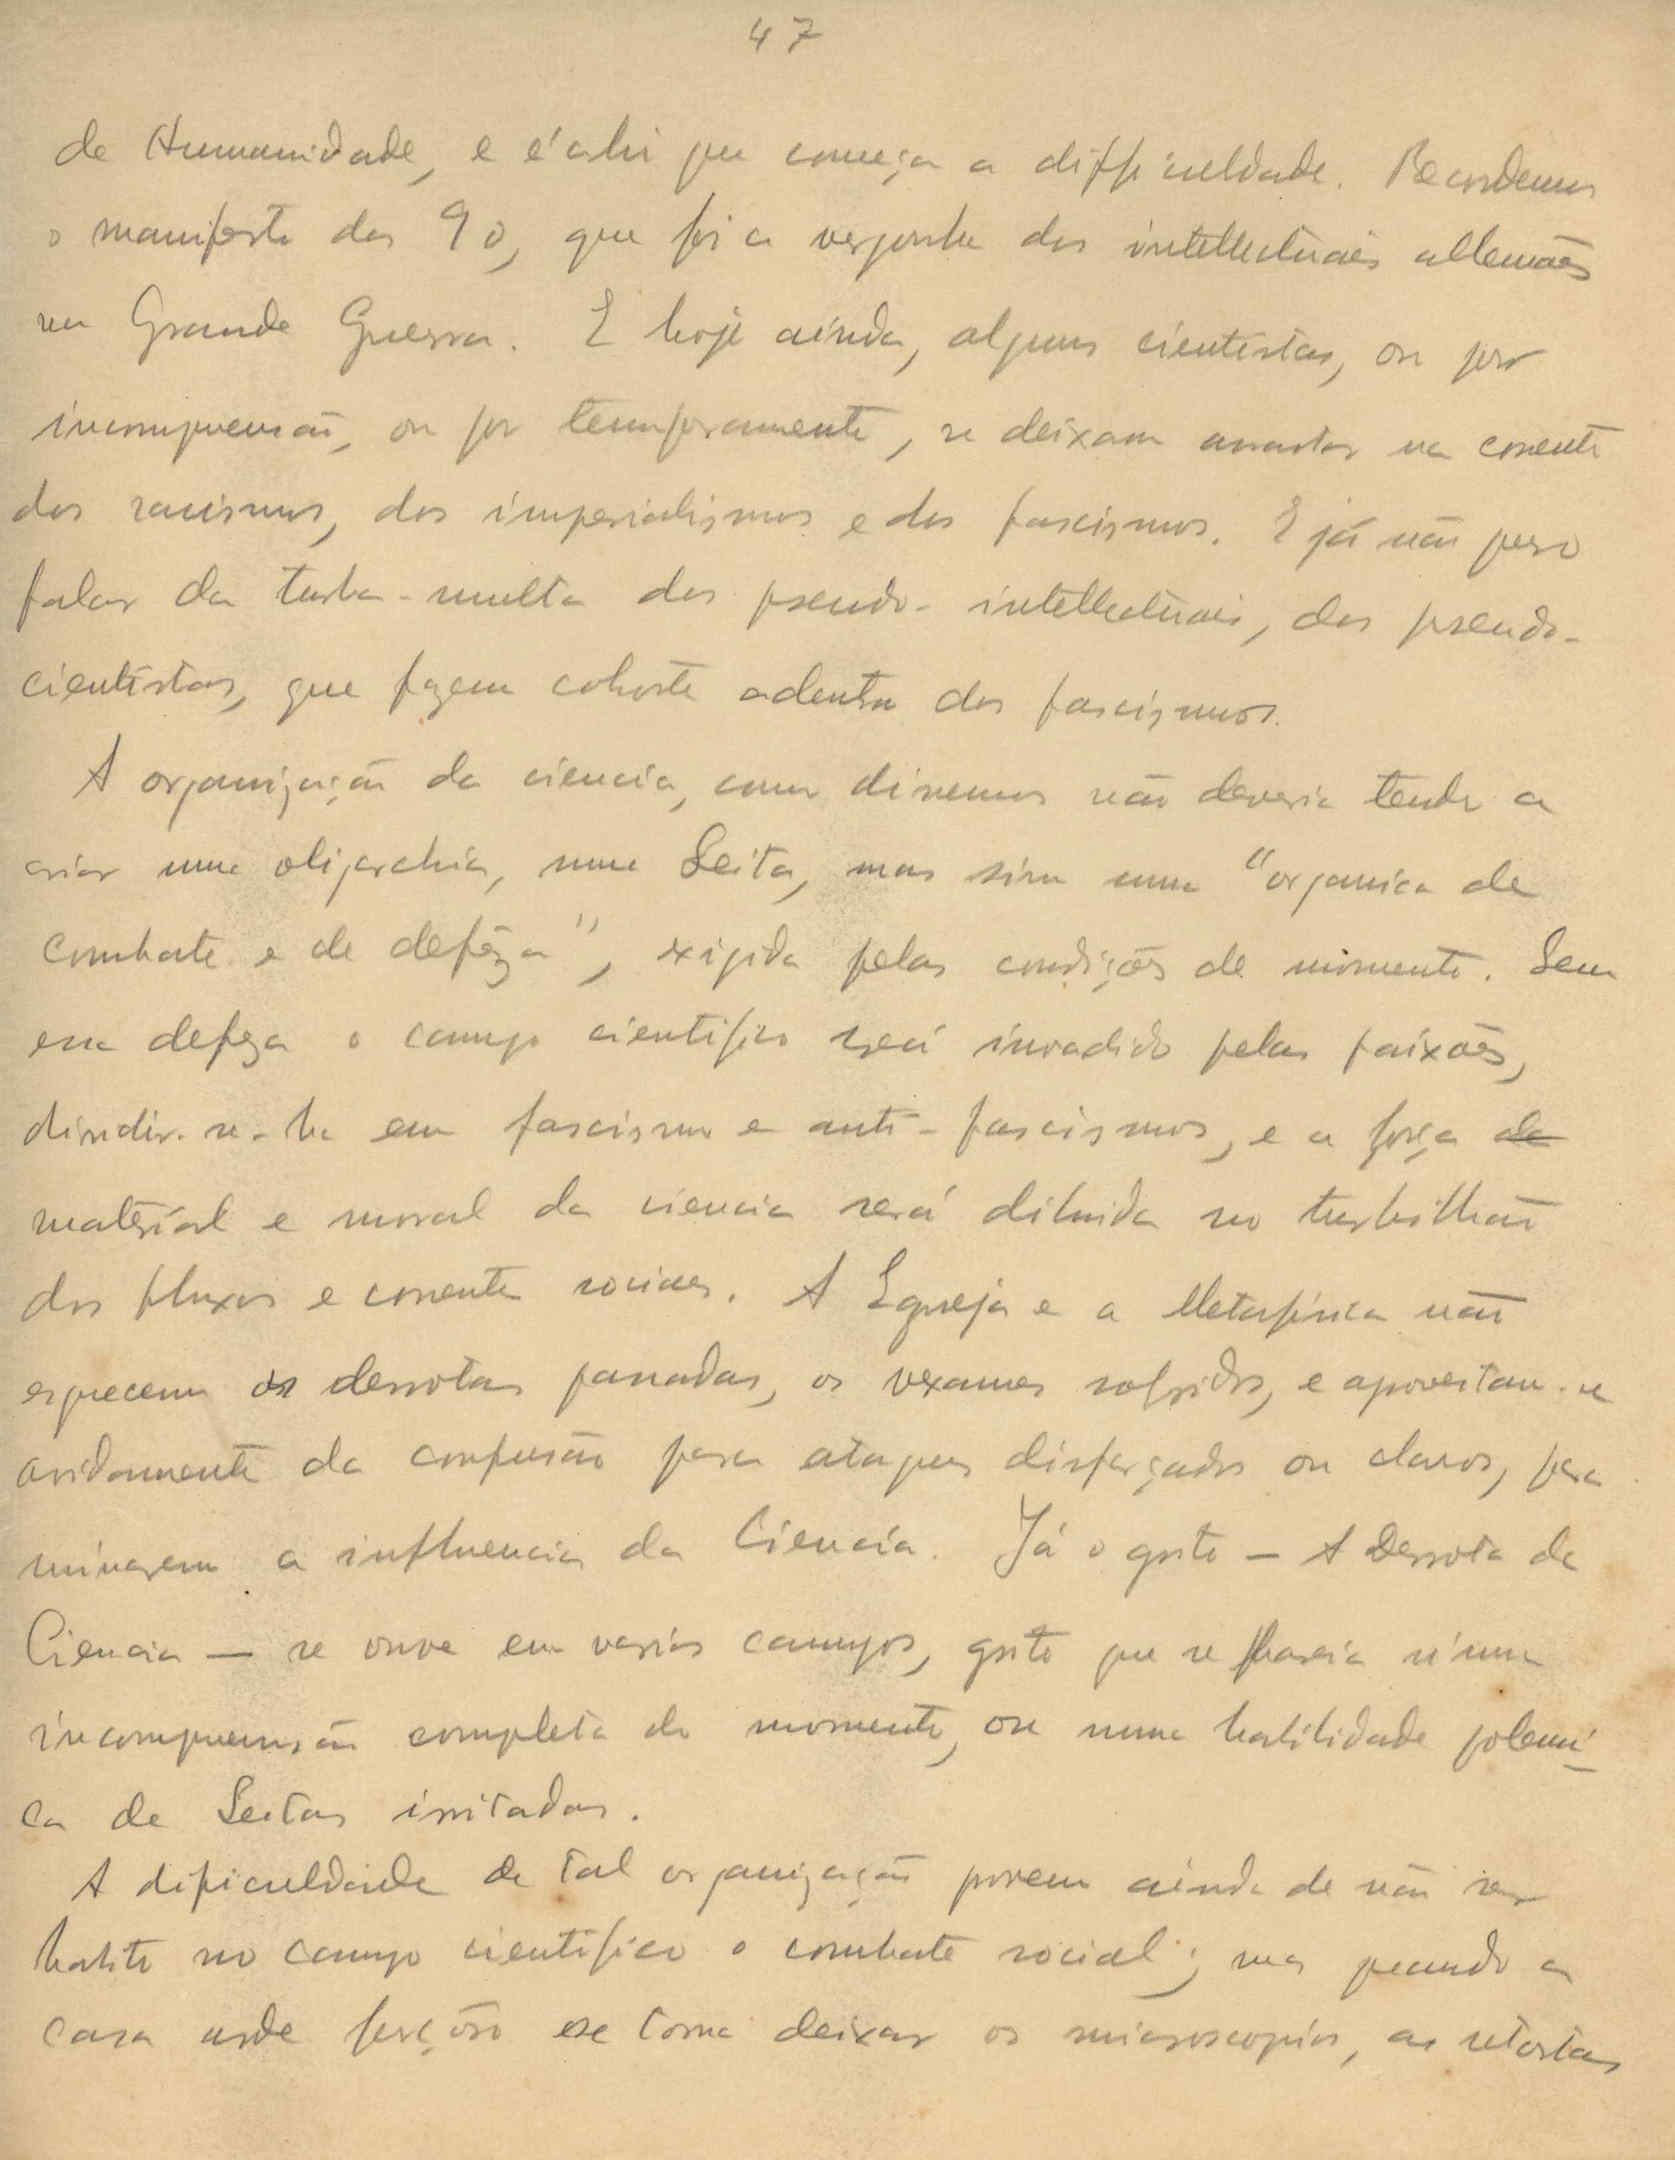 47
de Humanidade, e é ahi que começa a difficuldade. Recordemos
o manifesto dos 90, que foi a vergonha dos intellectuaes allemães
na Grande Guerra. E hoje ainda, alguns cientistas, ou por
incompreensão, ou por temperamento, se deixam arrastar na corrente
dos racismos, dos imperialismos e dos fascismos. E já não quero
falar da turba-multa dos pseudo-intellectuais, dos pseudo-
cientistas, que fazem cohorte adentro dos fascismos.
A organização da ciencia, como dissemos não deveria tender a
criar uma oligarchia, uma Seita, mas sim uma "organica de
combate e de defêza", exigida pelas condições de momento. Sem
essa defeza o campo cientifico será invadido pelas paixões,
dividir-se-ha em fascismo e anti-fascismos, e a força de
material e moral da ciencia será diluida no turbilhão
dos fluxos e correntes sociaes. A Egreja e a Metafisica não
esquecem as derrotas passadas, os vexames sofridos, e aproveitam-se
avidamente da confusão para ataques disfarçados ou claros, para
minarem a influencia da Ciencia. Já o grito — A Derrota da
Ciencia — se ouve em varios campos, grito que se baseia n'uma
incompreensão completa do momento, ou numa habilidade polemi-
ca de Seitas irritadas.
A dificuldade de tal organização provem ainda de não ser
habito no campo cientifico o combate social; mas quando a
casa arde forçoso se torna deixar os microscopios, as retortas